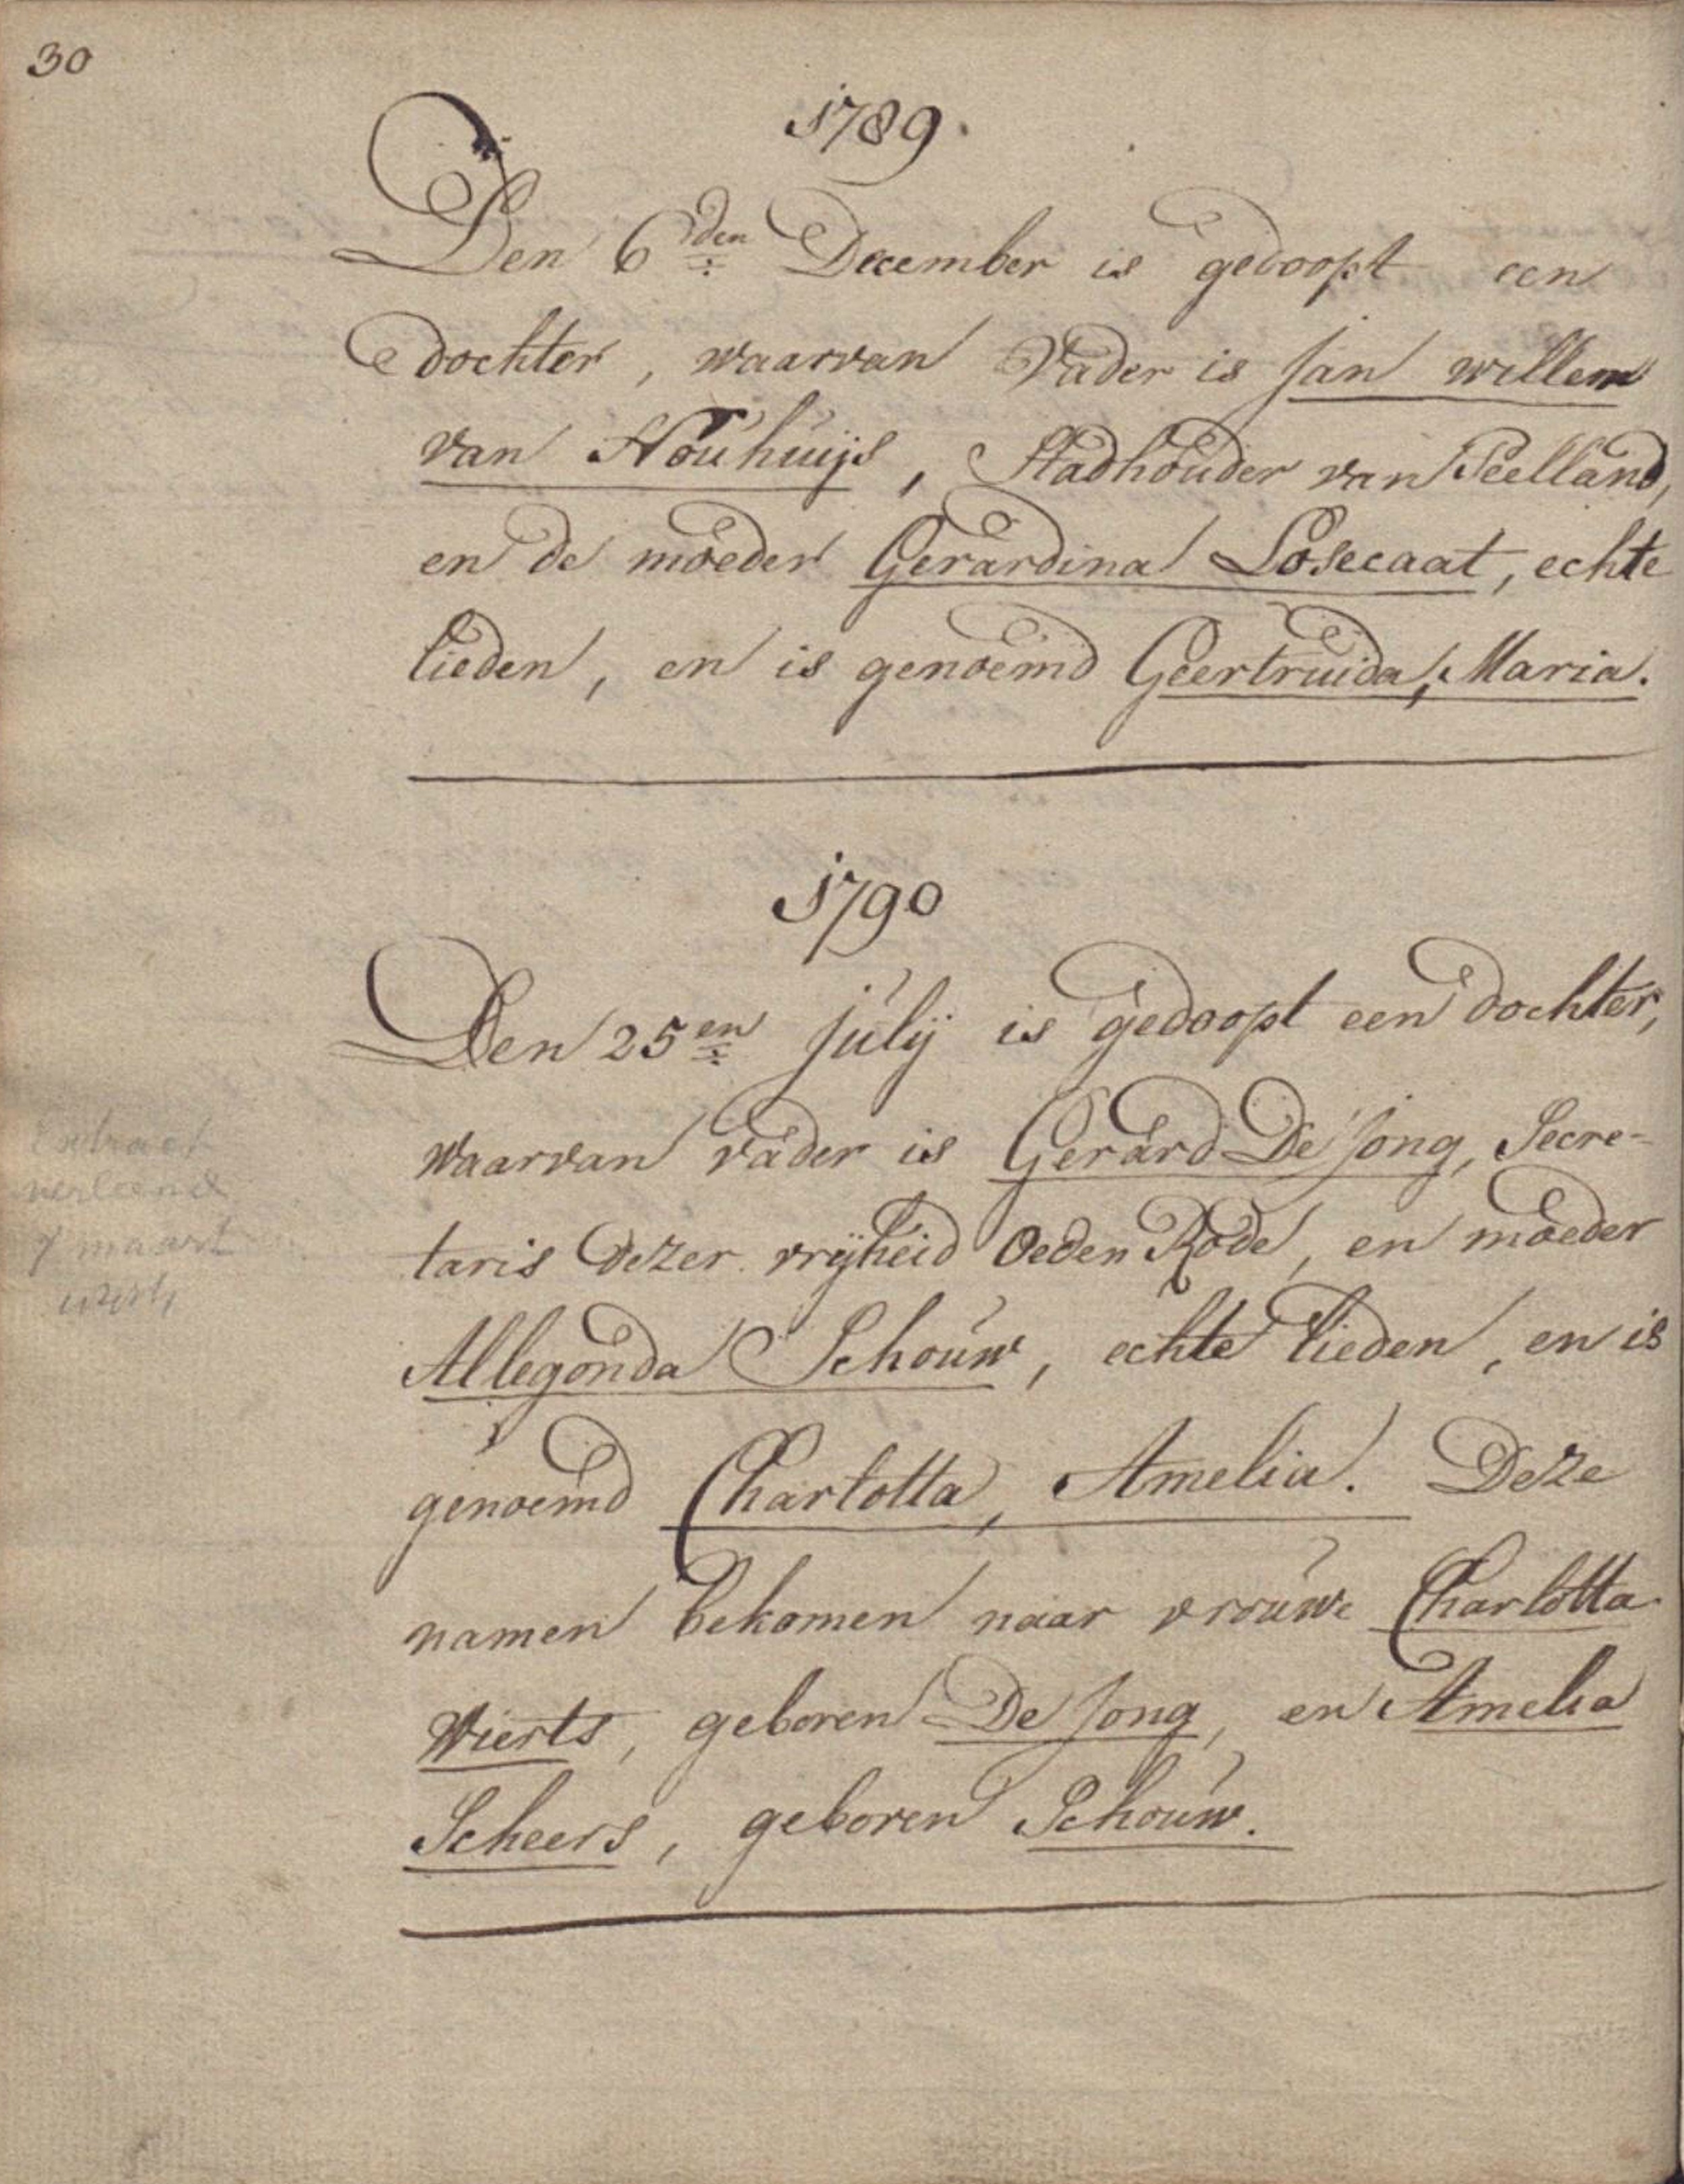 30
1789.
Den 6den December is gedoopt een
dochter, waarvan Vader is Jan willem
van Nouhuijs, Stadhouder van Peelland,
en de moeder Gerardina Losecaat, echte
lieden, en is genoemd Geertruida, Maria.
1790
Den 25en julij is gedoopt een dochter,
waarvan vader is Gerard De Jong, Secre-
taris dezer vrijheid Oeden Rode, en moeder
Allegonda Schouw, echte lieden, en is
genoemd Charlotta, Amelia. Deze
namen bekomen naar vrouwe Charlotta
Wierts, geboren De Jong, en Amelia
Scheers, geboren Schouw.
Extract
verleend
7 maart